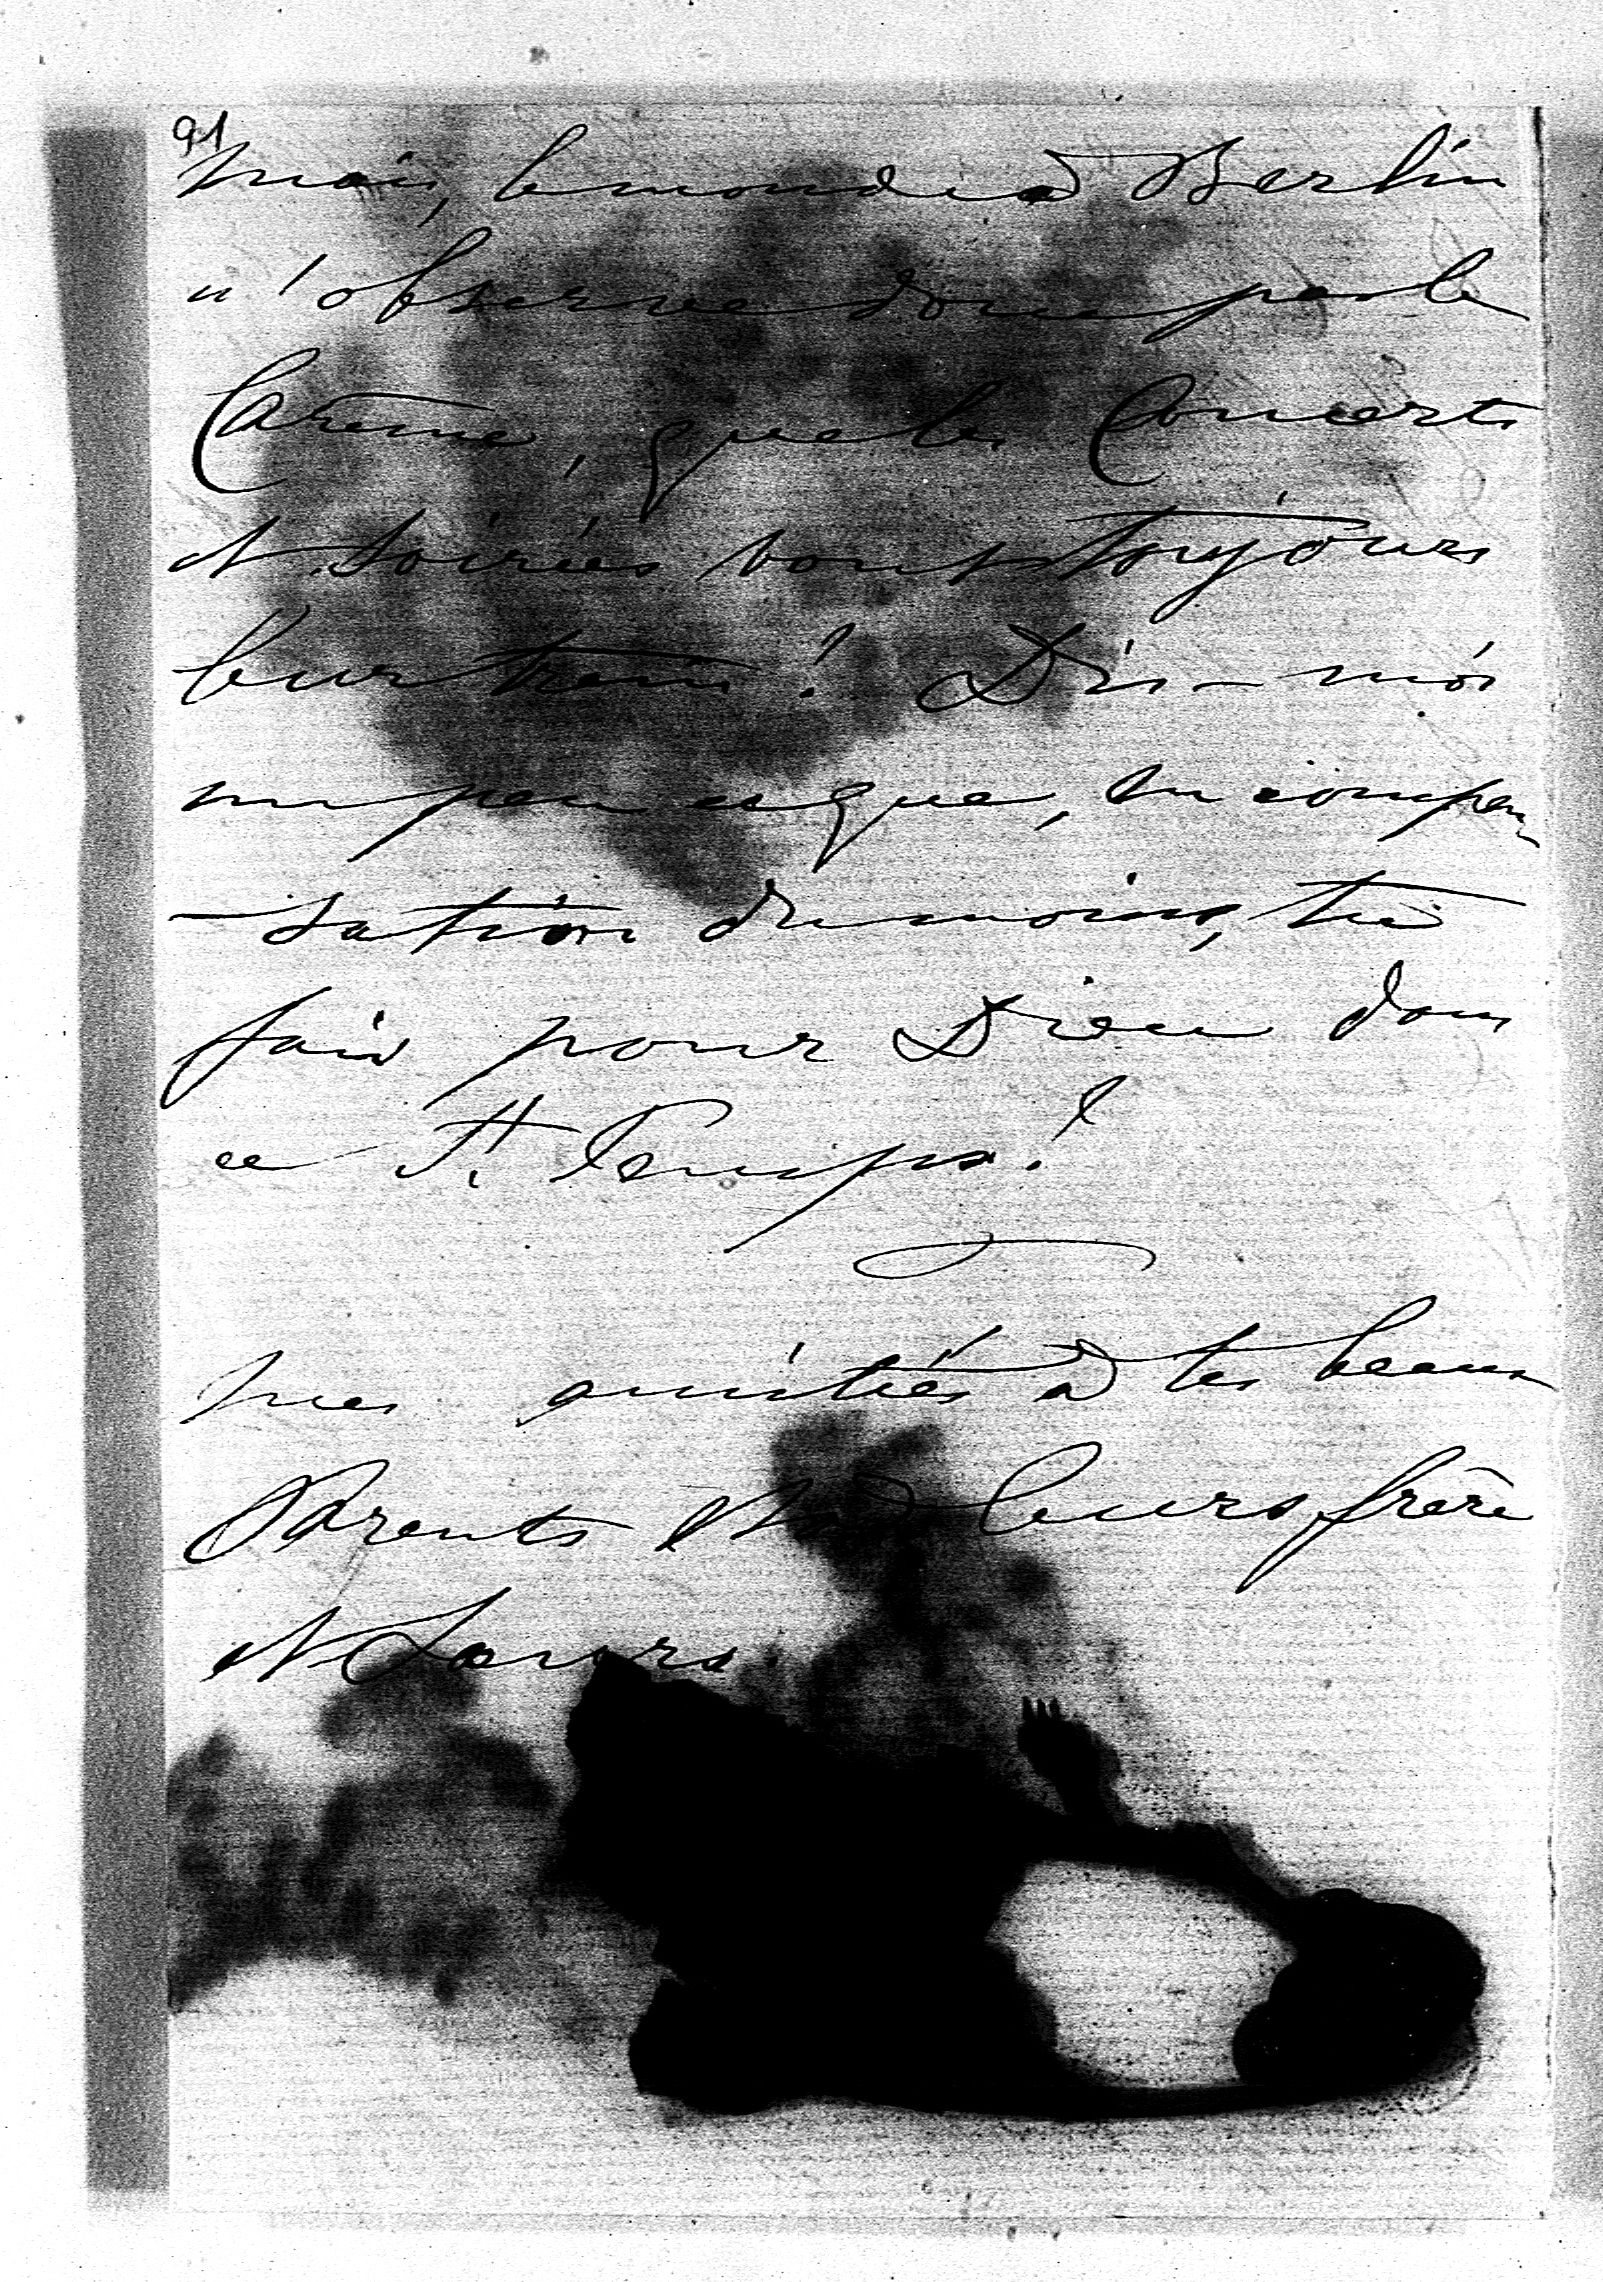 91
Mais, le monde à Berlin
n'observe donc pas le
Carême, que les Concerts
et soirées vont toujours
leur train! Dis-moi
un peu ce que, en compen
-sation du moins, tu
fais pour Dieu dans
ce St. Temps!
mes amitiés à tes beaux
Parents et à leurs frère
et Soeurs.